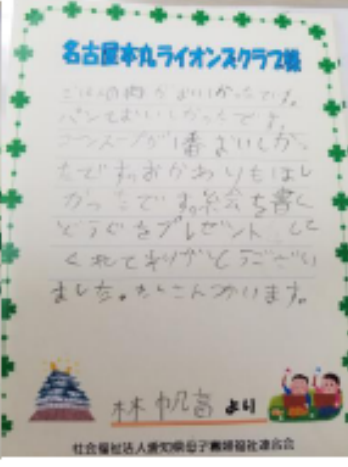 名古屋本丸ライオンズクラブ様
ごはんの肉がおいしかったです。
パンもおいしかったです。
コーンスープが1番おいしかっ
たです。おかわりもほし
かったです。絵を書く
どうぐをプレゼントして
くれてありがとうござい
ました。たくさんつかいます。
林 帆高 より
社会福祉法人愛知県母子寡婦福祉連合会